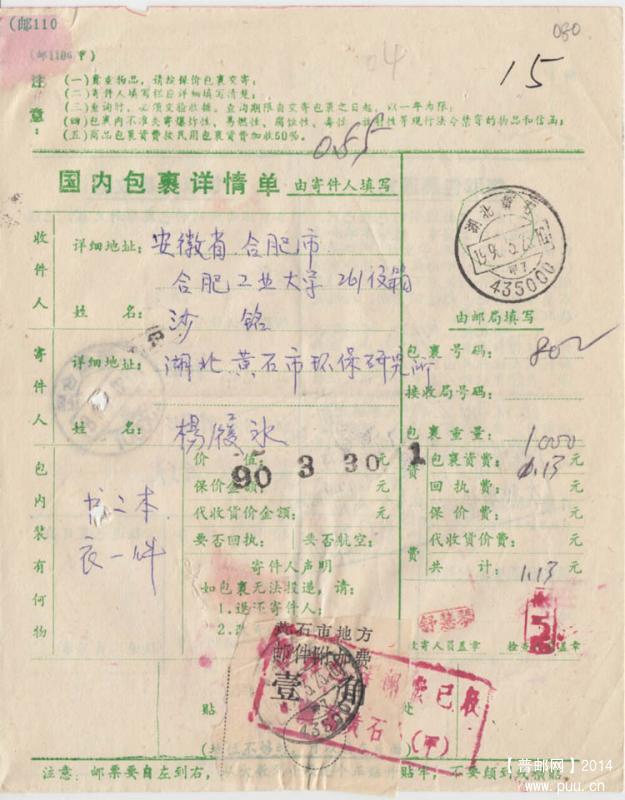 (邮110
080
(邮1106甲)
04
15
注意：
(一)贵重物品，请按保价包裹交寄；
(二)寄件人填写栏目详细填写清楚；
(三)查询时，必须交验收据。查询期限自交寄包裹之日起，以一年为限；
(四)包裹内不准夹寄爆炸性、易燃性、腐蚀性、毒性、性等现行法令禁寄的物品和信函；
(五)商品包裹资费按民用包裹资费加收50%。
0.55
国内包裹详情单 由寄件人填写
湖北黄石
435000
收件人
详细地址：安徽省合肥市
合肥工业大学261信箱
姓名：沙铭
由邮局填写
寄件人
详细地址：湖北黄石市环保研究所
姓名：杨履冰
包裹号码：802
接收局号码：
包裹重量：1000
包内装有何物
书二本
衣一件
价值：元
90 3 30 1
保价金额：元
代收货价金额：元
要否回执： 要否航空：
寄件人声明
如包裹无法投递，请：
1.退还寄件人；
2.
资费
包裹资费：1.13元
回执费：元
保价费：元
代收货价费：元
共计：1.13元
舒慧琴
5
收寄人员盖章
黄石市地方
邮件附加费
壹角
435000
费已收
黄石
(甲)
贴
处
注意：邮票要自左到右，
贴牢，不要颠倒或横贴。
【普邮网】2014
www.puu.cn